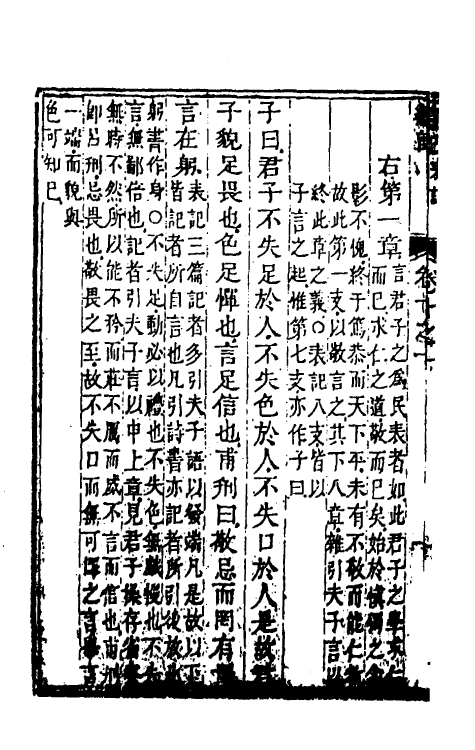 卷十之
右第一章言君子之爲民表者如此君子之學求仁
而已求仁之道敬而已矣始於愼獨之
影不愧終于篤恭而天下平未有不敬而能仁者
故此第一支以敬言之其下八章雜引夫子言以
終此章之義○表記八支皆以
子言之起惟第七支亦作子曰
子曰君子不失足於人不失色於人不失口於人是故君
子貌足畏也色足憚也言足信也甫刑曰敬忌而罔有擇
言在躬表記三篇記者多引夫子語以發端凡是故以下
皆記者所自言也凡引詩書亦記者所引後放此
躬書作身○不失足動必以禮也不失色無戲慢也不失
言無鄙倍也記者引夫子言以申上章見君子操存省察
無時不然所以能不矜而莊不厲而威不言而信也甫刑
即呂刑忌畏也敬畏之至故不失口而無可擇之言舉言
一端而貌與
色可知已